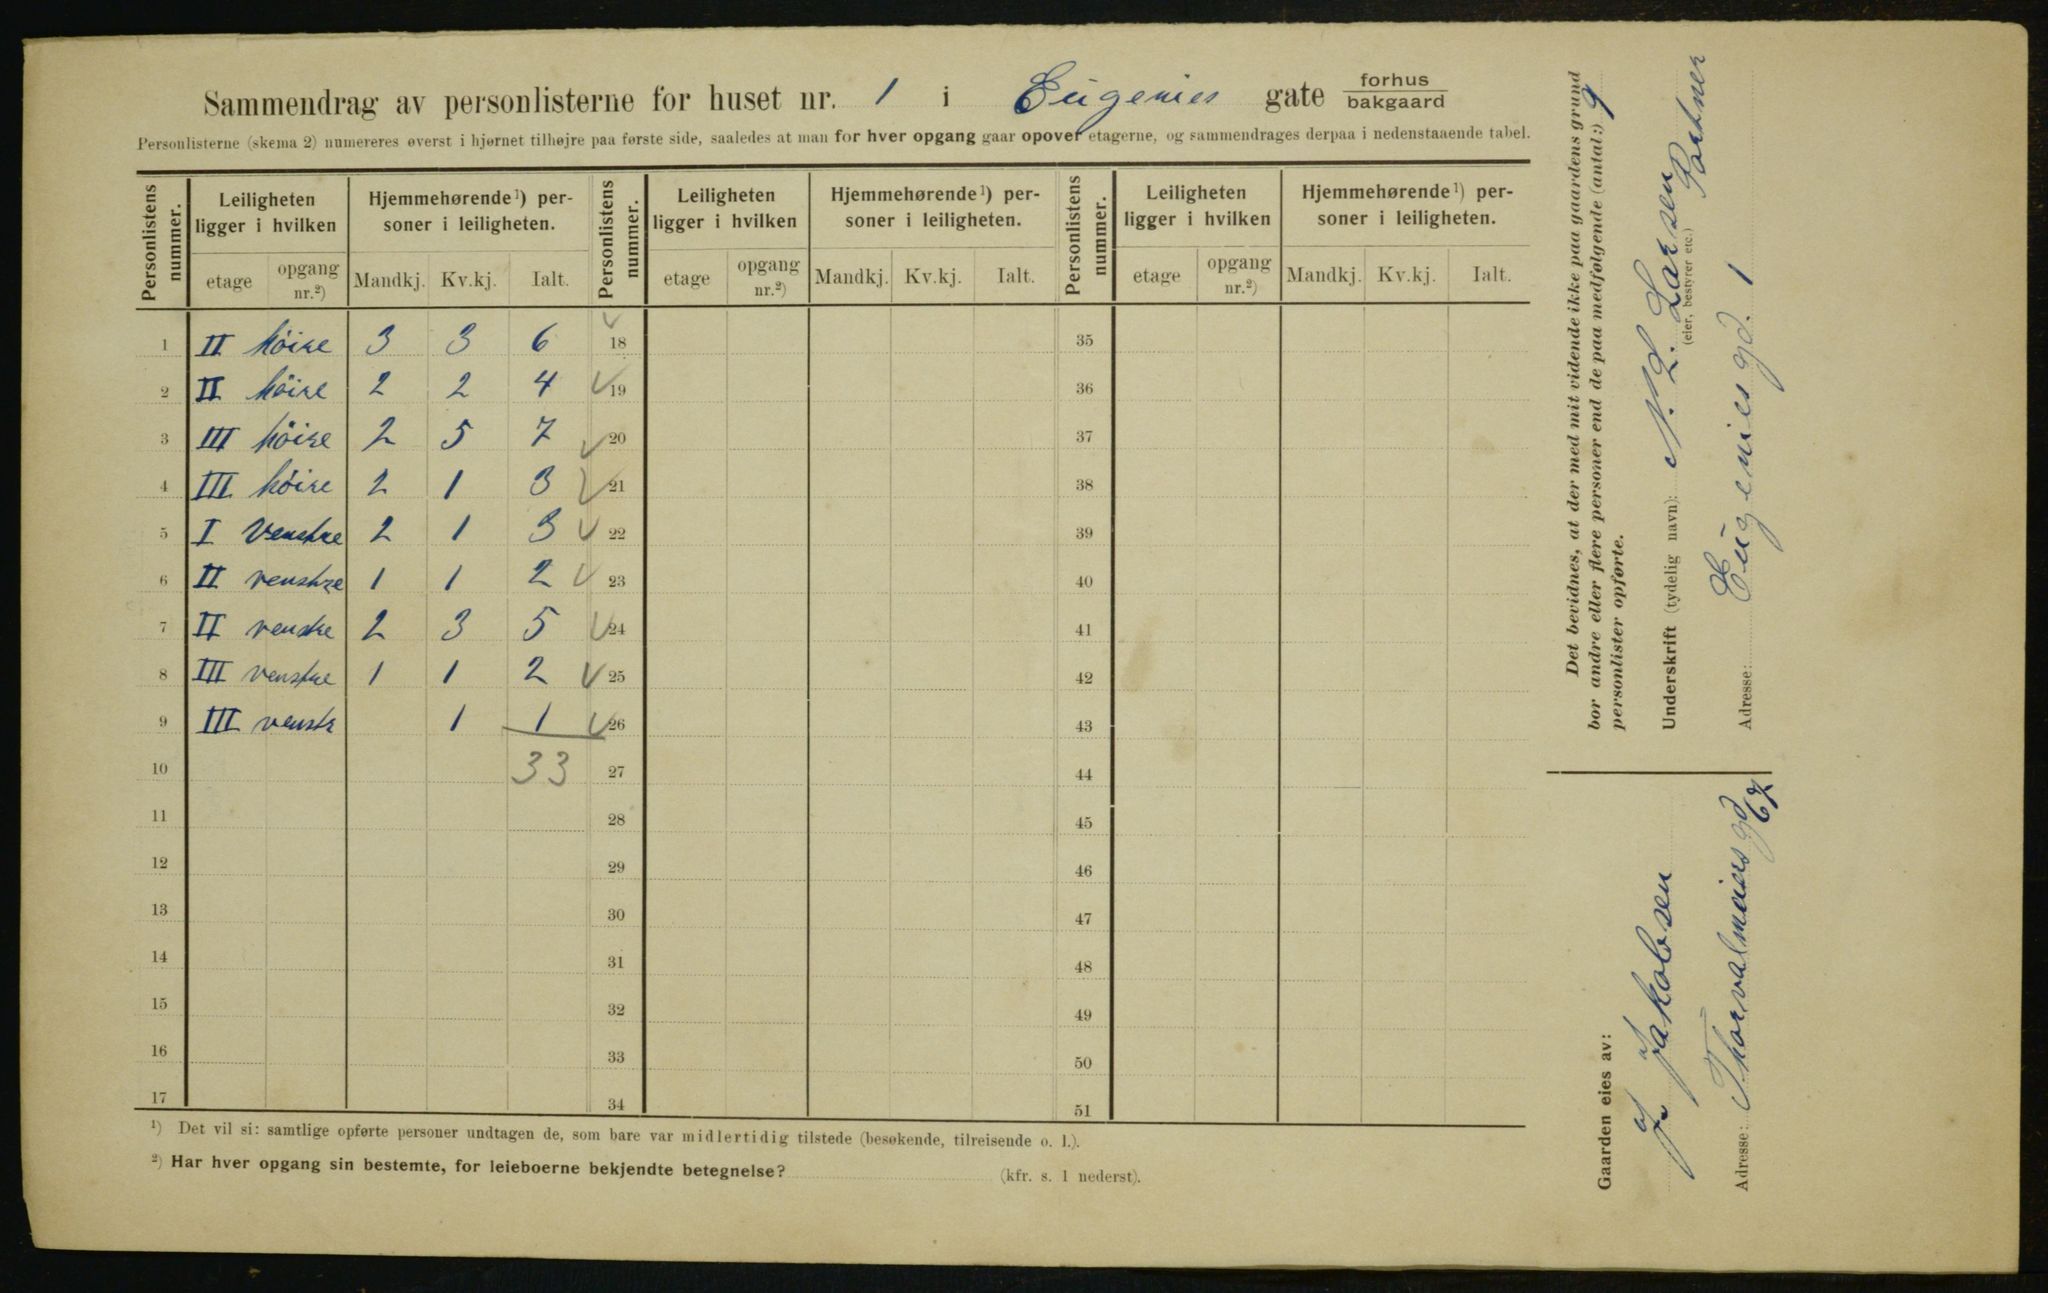 Sammendrag av personlisterne for huset nr. 1 i Eugenies gate forhus
bakgaard
Personlisterne (skema 2) numereres øverst i hjørnet tilhøjre paa første side, saaledes at man for hver opgang gaar opover etagerne, og sammendrages derpaa i nedenstaaende tabel.
Personlistens nummer. Leiligheten ligger i hvilken Hjemmehørende¹) personer i leiligheten. Personlistens nummer. Leiligheten ligger i hvilken Hjemmehørende¹) personer i leiligheten. Personlistens nummer. Leiligheten ligger i hvilken Hjemmehørende¹) personer i leiligheten.
etage opgang nr.²) Mandkj. Kv.kj. Ialt. etage opgang nr.²) Mandkj. Kv.kj. Ialt. etage opgang nr.²) Mandkj. Kv.kj. Ialt.
1 II höire 3 3 6 18 35
2 II höire 2 2 4 19 36
3 III höire 2 5 7 20 37
4 III höire 2 1 3 21 38
5 I Venstre 2 1 3 22 39
6 II venstre 1 1 2 23 40
7 II venstre 2 3 5 24 41
8 III venstre 1 1 2 25 42
9 III venstr 1 1 26 43
10 33 27 44
11 28 45
12 29 46
13 30 47
14 31 48
15 32 49
16 33 50
17 34 51
¹) Det vil si: samtlige opførte personer undtagen de, som bare var midlertidig tilstede (besøkende, tilreisende o. l.).
²) Har hver opgang sin bestemte, for leieboerne bekjendte betegnelse? (kfr. s. 1 nederst).
Det bevidnes, at der med mit vidende ikke paa gaardens grund
bor andre eller flere personer end de paa medfølgende (antal:) 9
personlister opførte.
Underskrift (tydelig navn): N. L. Larsen Portner
(eier, bestyrer etc.)
Adresse: Eugenies gd. 1
Gaarden eies av:
J. Jakobsen
Adresse: Thorvalmeiers gd 67